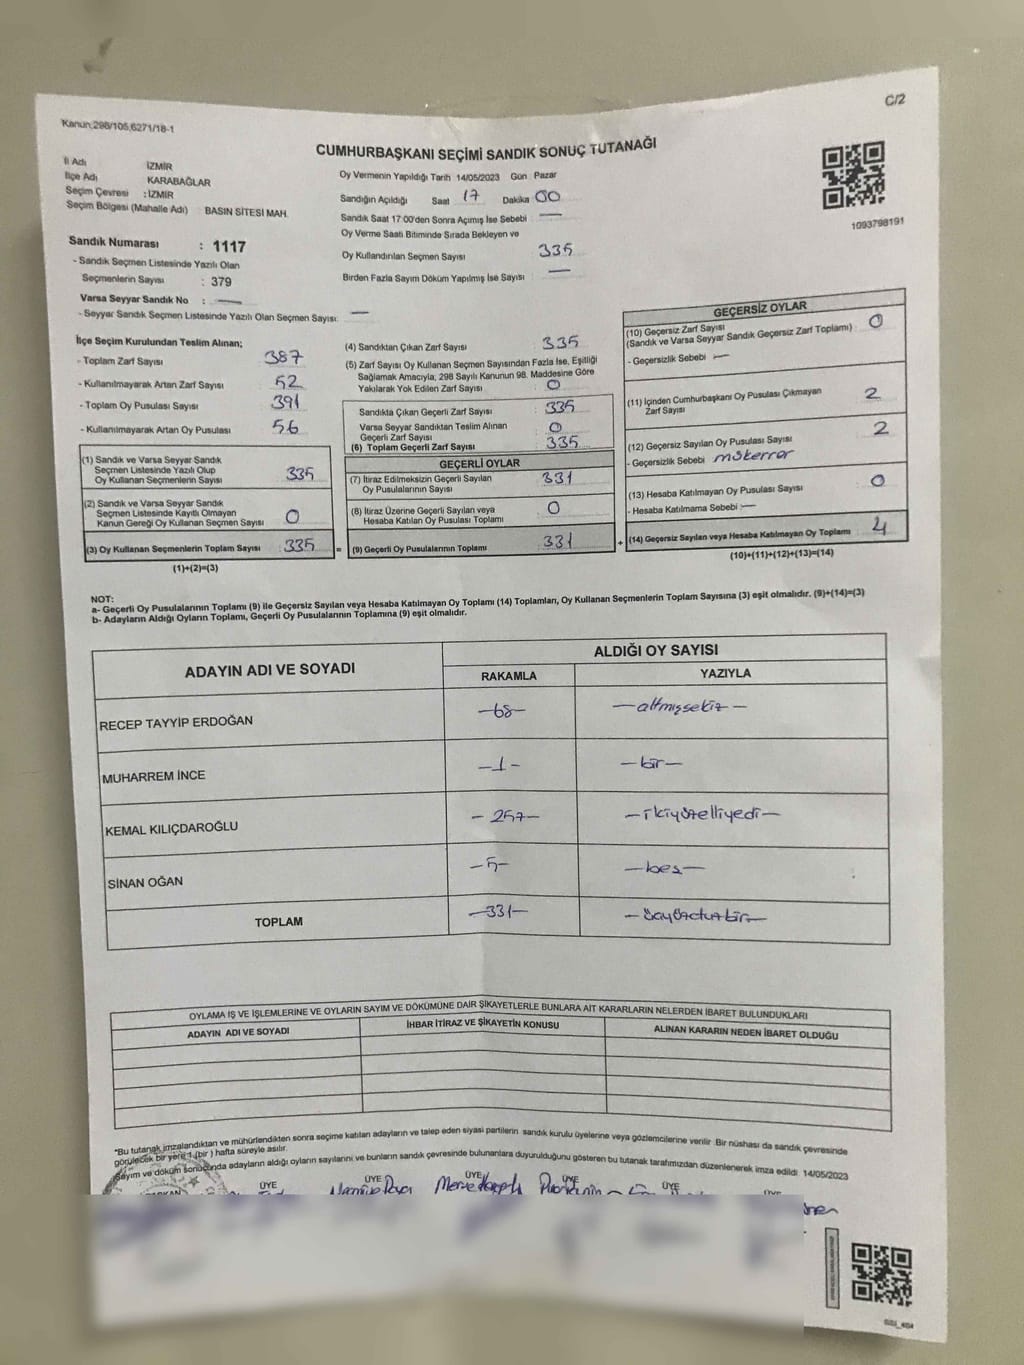 C/2
Kanun:298/105,6271/18-1
CUMHURBAŞKANI SEÇİMİ SANDIK SONUÇ TUTANAĞI
İl Adı İZMİR
İlçe Adı KARABAĞLAR
Seçim Çevresi : İZMİR
Seçim Bölgesi (Mahalle Adı) BASIN SİTESİ MAH.
Sandık Numarası : 1117
- Sandık Seçmen Listesinde Yazılı Olan
Seçmenlerin Sayısı : 379
Varsa Seyyar Sandık No : —
- Seyyar Sandık Seçmen Listesinde Yazılı Olan Seçmen Sayısı: —
Oy Vermenin Yapıldığı Tarih 14/05/2023 Gün Pazar
Sandığın Açıldığı Saat 17 Dakika 00
Sandık Saat 17:00'den Sonra Açımış İse Sebebi —
Oy Verme Saati Bitiminde Sırada Bekleyen ve
Oy Kullandırılan Seçmen Sayısı 335
Birden Fazla Sayım Döküm Yapılmış İse Sayısı —
1093798191
İlçe Seçim Kurulundan Teslim Alınan;
- Toplam Zarf Sayısı 387
- Kullanılmayarak Artan Zarf Sayısı 52
- Toplam Oy Pusulası Sayısı 391
- Kullanılmayarak Artan Oy Pusulası 56
(1) Sandık ve Varsa Seyyar Sandık
Seçmen Listesinde Yazılı Olup
Oy Kullanan Seçmenlerin Sayısı 335
(2) Sandık ve Varsa Seyyar Sandık
Seçmen Listesinde Kayıtlı Olmayan
Kanun Gereği Oy Kullanan Seçmen Sayısı 0
(3) Oy Kullanan Seçmenlerin Toplam Sayısı 335 =
(1)+(2)=(3)
(4) Sandıktan Çıkan Zarf Sayısı 335
(5) Zarf Sayısı Oy Kullanan Seçmen Sayısından Fazla İse, Eşitliği
Sağlamak Amacıyla, 298 Sayılı Kanunun 98. Maddesine Göre
Yakılarak Yok Edilen Zarf Sayısı 0
Sandıkta Çıkan Geçerli Zarf Sayısı 335
Varsa Seyyar Sandıktan Teslim Alınan
Geçerli Zarf Sayısı 0
(6) Toplam Geçerli Zarf Sayısı 335
GEÇERLİ OYLAR
(7) İtiraz Edilmeksizin Geçerli Sayılan
Oy Pusulalarının Sayısı 331
(8) İtiraz Üzerine Geçerli Sayılan veya
Hesaba Katılan Oy Pusulası Toplamı 0
(9) Geçerli Oy Pusulalarının Toplamı 331 +
GEÇERSİZ OYLAR
(10) Geçersiz Zarf Sayısı
(Sandık ve Varsa Seyyar Sandık Geçersiz Zarf Toplamı) 0
- Geçersizlik Sebebi —
(11) İçinden Cumhurbaşkanı Oy Pusulası Çıkmayan
Zarf Sayısı 2
(12) Geçersiz Sayılan Oy Pusulası Sayısı 2
- Geçersizlik Sebebi mükerrer
(13) Hesaba Katılmayan Oy Pusulası Sayısı 0
- Hesaba Katılmama Sebebi —
(14) Geçersiz Sayılan veya Hesaba Katılmayan Oy Toplamı 4
(10)+(11)+(12)+(13)=(14)
NOT:
a- Geçerli Oy Pusulalarının Toplamı (9) ile Geçersiz Sayılan veya Hesaba Katılmayan Oy Toplamı (14) Toplamları, Oy Kullanan Seçmenlerin Toplam Sayısına (3) eşit olmalıdır. (9)+(14)=(3)
b- Adayların Aldığı Oyların Toplamı, Geçerli Oy Pusulalarının Toplamına (9) eşit olmalıdır.
ADAYIN ADI VE SOYADI ALDIĞI OY SAYISI
RAKAMLA YAZIYLA
RECEP TAYYİP ERDOĞAN —68— —altmışsekiz—
MUHARREM İNCE —1— —bir—
KEMAL KILIÇDAROĞLU —257— —ikiyüzelliyedi—
SİNAN OĞAN —5— —beş—
TOPLAM —331— —üçyüzotuzbir—
OYLAMA İŞ VE İŞLEMLERİNE VE OYLARIN SAYIM VE DÖKÜMÜNE DAİR ŞİKAYETLERLE BUNLARA AİT KARARLARIN NELERDEN İBARET BULUNDUKLARI
ADAYIN ADI VE SOYADI İHBAR İTİRAZ VE ŞİKAYETİN KONUSU ALINAN KARARIN NEDEN İBARET OLDUĞU
*Bu tutanak imzalandıktan ve mühürlendikten sonra seçime katılan adayların ve talep eden siyasi partilerin sandık kurulu üyelerine veya gözlemcilerine verilir. Bir nüshası da sandık çevresinde
görülecek bir yere 1 (bir) hafta süreyle asılır.
Sayım ve döküm sonucunda adayların aldığı oyların sayılarını ve bunların sandık çevresinde bulunanlara duyurulduğunu gösteren bu tutanak tarafımızdan düzenlenerek imza edildi. 14/05/2023
ÜYE ÜYE ÜYE ÜYE ÜYE ÜYE